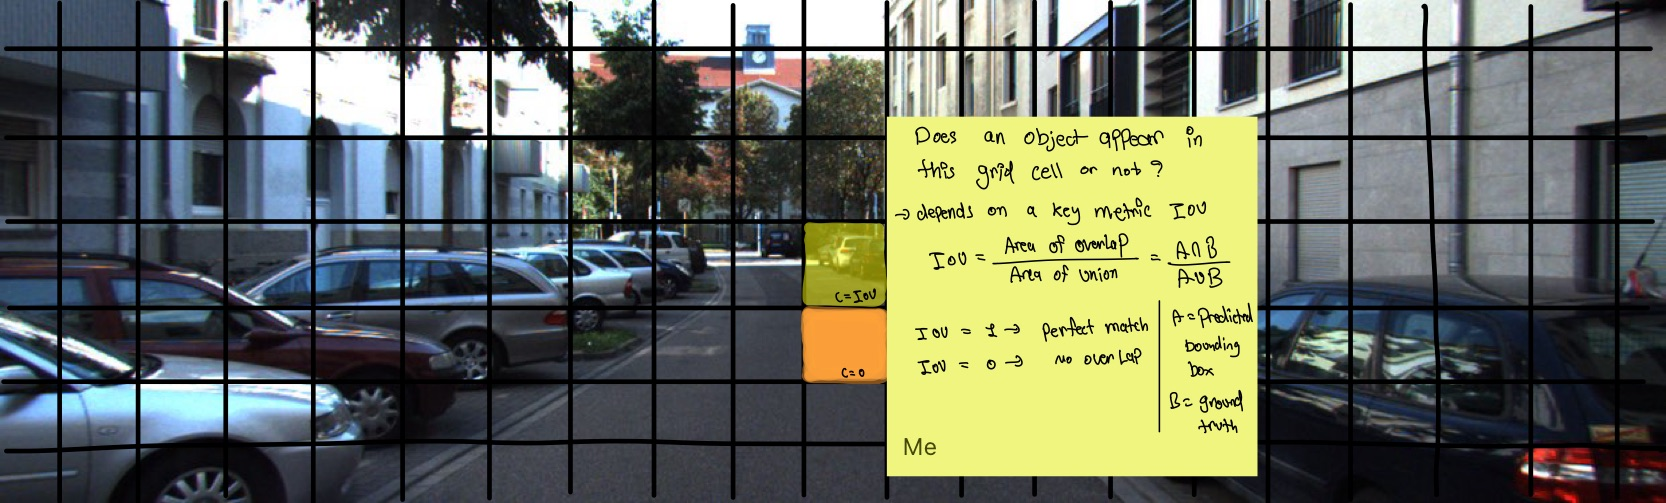 Does an object appear in
this grid cell or not ?
→ depends on a key metric IOU
IOU = Area of overlap / Area of union = A∩B / A∪B
IOU = 1 → perfect match
IOU = 0 → no overlap
A = Predicted
bounding
box
B = ground
truth
Me
C = IOU
C = 0